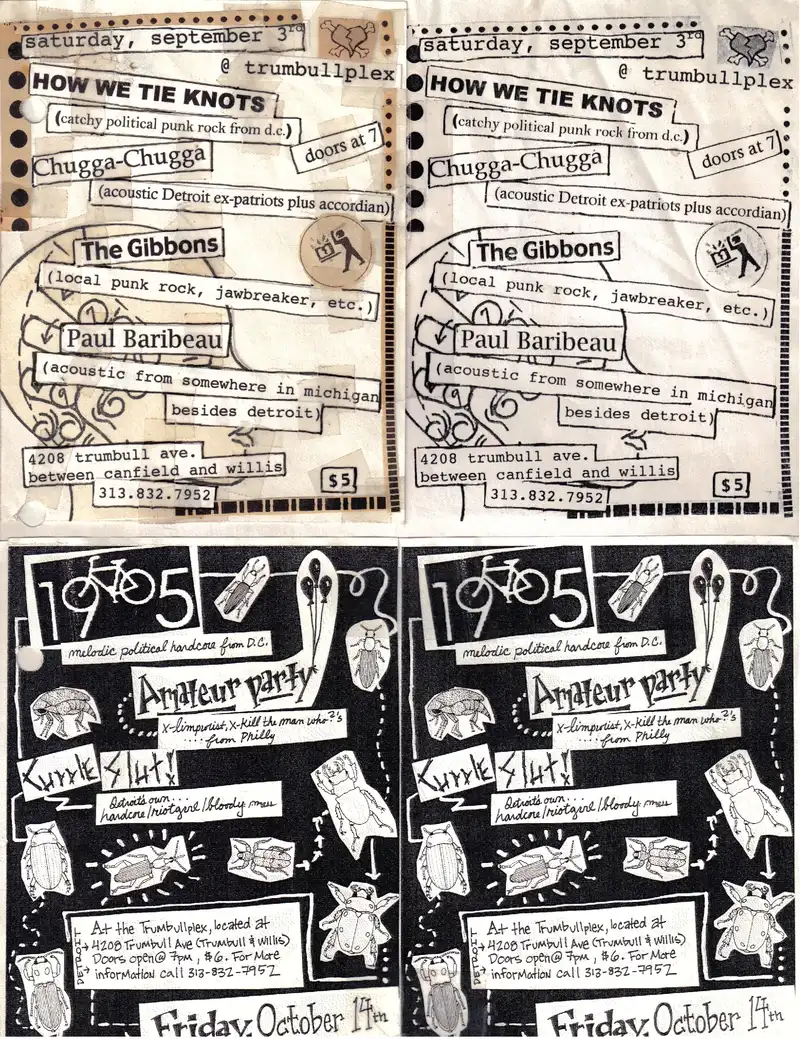 saturday, september 3rd
@ trumbullplex
HOW WE TIE KNOTS
(catchy political punk rock from d.c.)
doors at 7
Chugga-Chugga
(acoustic Detroit ex-patriots plus accordian)
The Gibbons
(local punk rock, jawbreaker, etc.)
Paul Baribeau
(acoustic from somewhere in michigan
besides detroit)
4208 trumbull ave.
between canfield and willis
313.832.7952
$5
saturday, september 3rd
@ trumbullplex
HOW WE TIE KNOTS
(catchy political punk rock from d.c.)
doors at 7
Chugga-Chugga
(acoustic Detroit ex-patriots plus accordian)
The Gibbons
(local punk rock, jawbreaker, etc.)
Paul Baribeau
(acoustic from somewhere in michigan
besides detroit)
4208 trumbull ave.
between canfield and willis
313.832.7952
$5
1905
melodic political hardcore from D.C.
Amateur party*
X-limpwrist, X-Kill the man who ?'s
....from Philly
Cuddle Slut!
Detroit's own...
hardcore/riotgrrl/bloody mess
DETROIT
At the Trumbullplex, located at
4208 Trumbull Ave (Trumbull & Willis)
Doors open @ 7pm, $6. For More
information call 313-832-7952
Friday, October 14th
1905
melodic political hardcore from D.C.
Amateur party*
X-limpwrist, X-Kill the man who ?'s
....from Philly
Cuddle Slut!
Detroit's own...
hardcore/riotgrrl/bloody mess
DETROIT
At the Trumbullplex, located at
4208 Trumbull Ave (Trumbull & Willis)
Doors open @ 7pm, $6. For More
information call 313-832-7952
Friday, October 14th